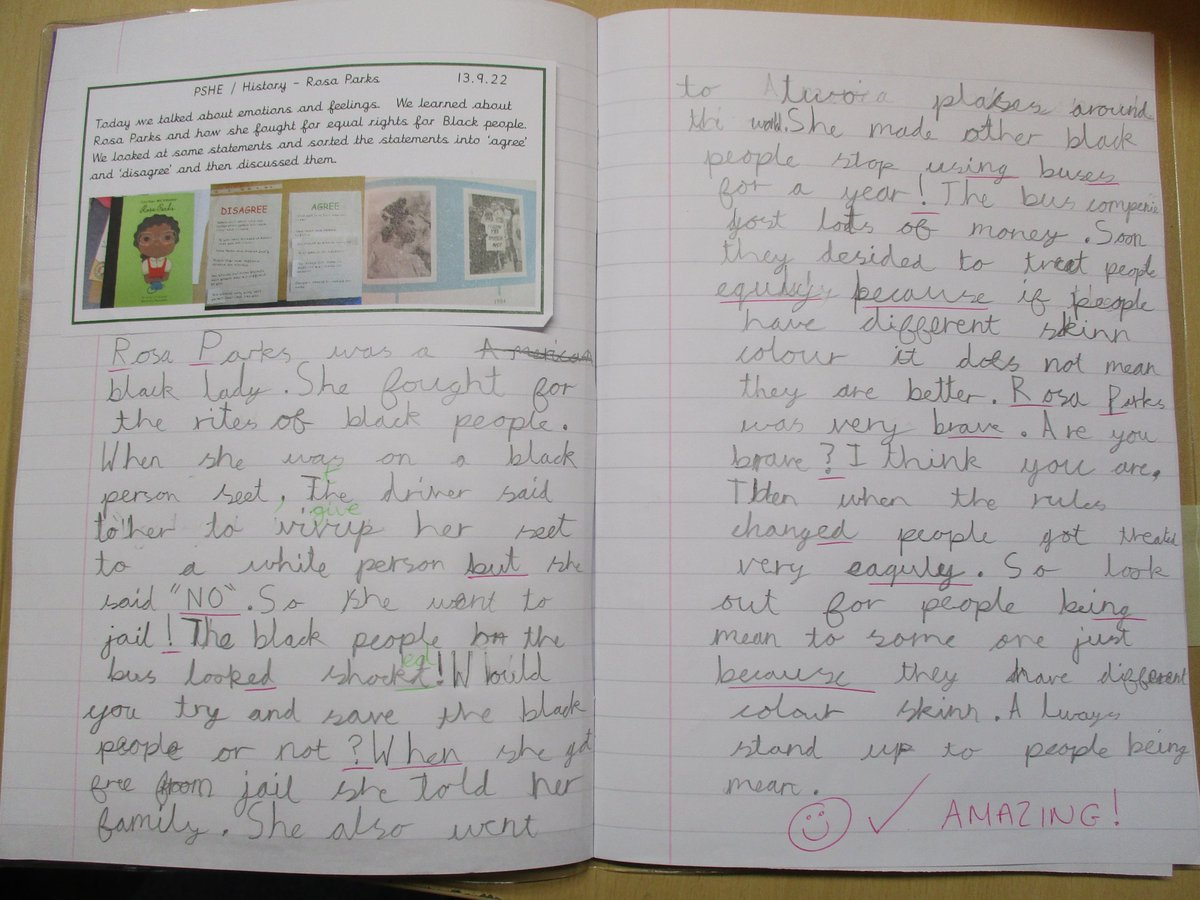 PSHE / History - Rosa Parks 13.9.22
Today we talked about emotions and feelings. We learned about
Rosa Parks and how she fought for equal rights for Black people.
We looked at some statements and sorted the statements into 'agree'
and 'disagree' and then discussed them.
Rosa Parks
DISAGREE
AGREE
Rosa Parks was a American
black lady. She fought for
the rites of black people.
When she was on a black
person seet. The driver said
to her to vivup her seet
give
to a white person but she
said "NO". So she went to
jail! The black people on the
bus looked shocked!Would
ed
you try and save the black
people or not? When she got
free from jail she told her
family. She also went
to plases around
the world. She made other black
people stop using buses
for a year! The bus companie
lost lots of money. Soon
they desided to treat people
because if people
have different skinn
colour it does not mean
they are better. Rosa Parks
was very brave. Are you
brave? I think you are.
Then when the rules
changed people got treated
very eaquley. So look
out for people being
mean to some one just
because they have different
colour skinn. Always
stand up to people being
mean.
AMAZING!